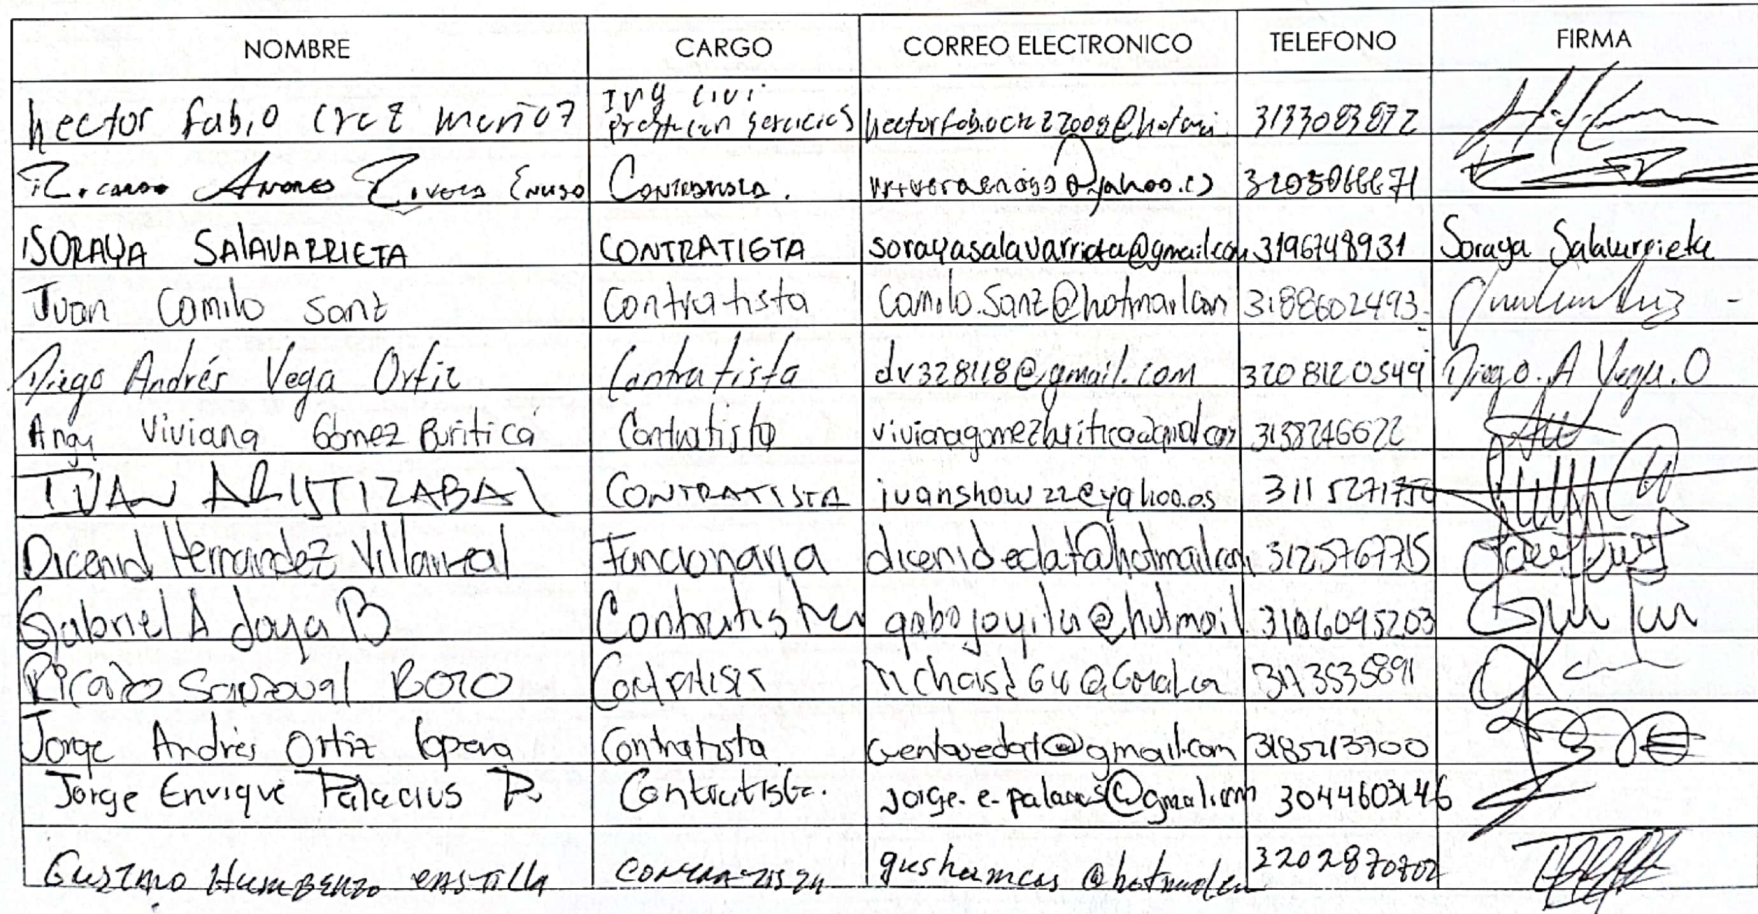 NOMBRE CARGO CORREO ELECTRONICO TELEFONO FIRMA
hector fabio cruz muñoz Ing civil prestacion servicios 3133083872
Ricardo Andres Rivera Enciso Contratista. 3205066671
SORAYA SALAVARRIETA CONTRATISTA sorayasalavarrieta@gmail.com 3196748931 Soraya Salavarrieta
Juan Camilo Sanz Contratista Camilo.Sanz@hotmail.com 3188602493
Diego Andrés Vega Ortiz Contratista dv328118@gmail.com 3208120549 Diego.A Vega.O
Angy Viviana Gómez Buriticá Contratista vivianagomezburitica@gmail.com 3138746622
IVAN ARISTIZABAL CONTRATISTA ivanshow22@yahoo.es 3115271750
Dicenid Hernandez Villarreal Funcionaria 3125767715
Gabriel A Joya B Contratista gabojoyita@hotmail 3106095203
Ricardo Sandoval Contratista 3173535891
Jorge Andrés Ortiz Lopera Contratista 3185213700
Jorge Enrique Palacios P. Contratista. jorge.e.palacios@gmail.com 3044603146
Gustavo Humberto castilla contratista gushumcas@hotmail.com 3202870702